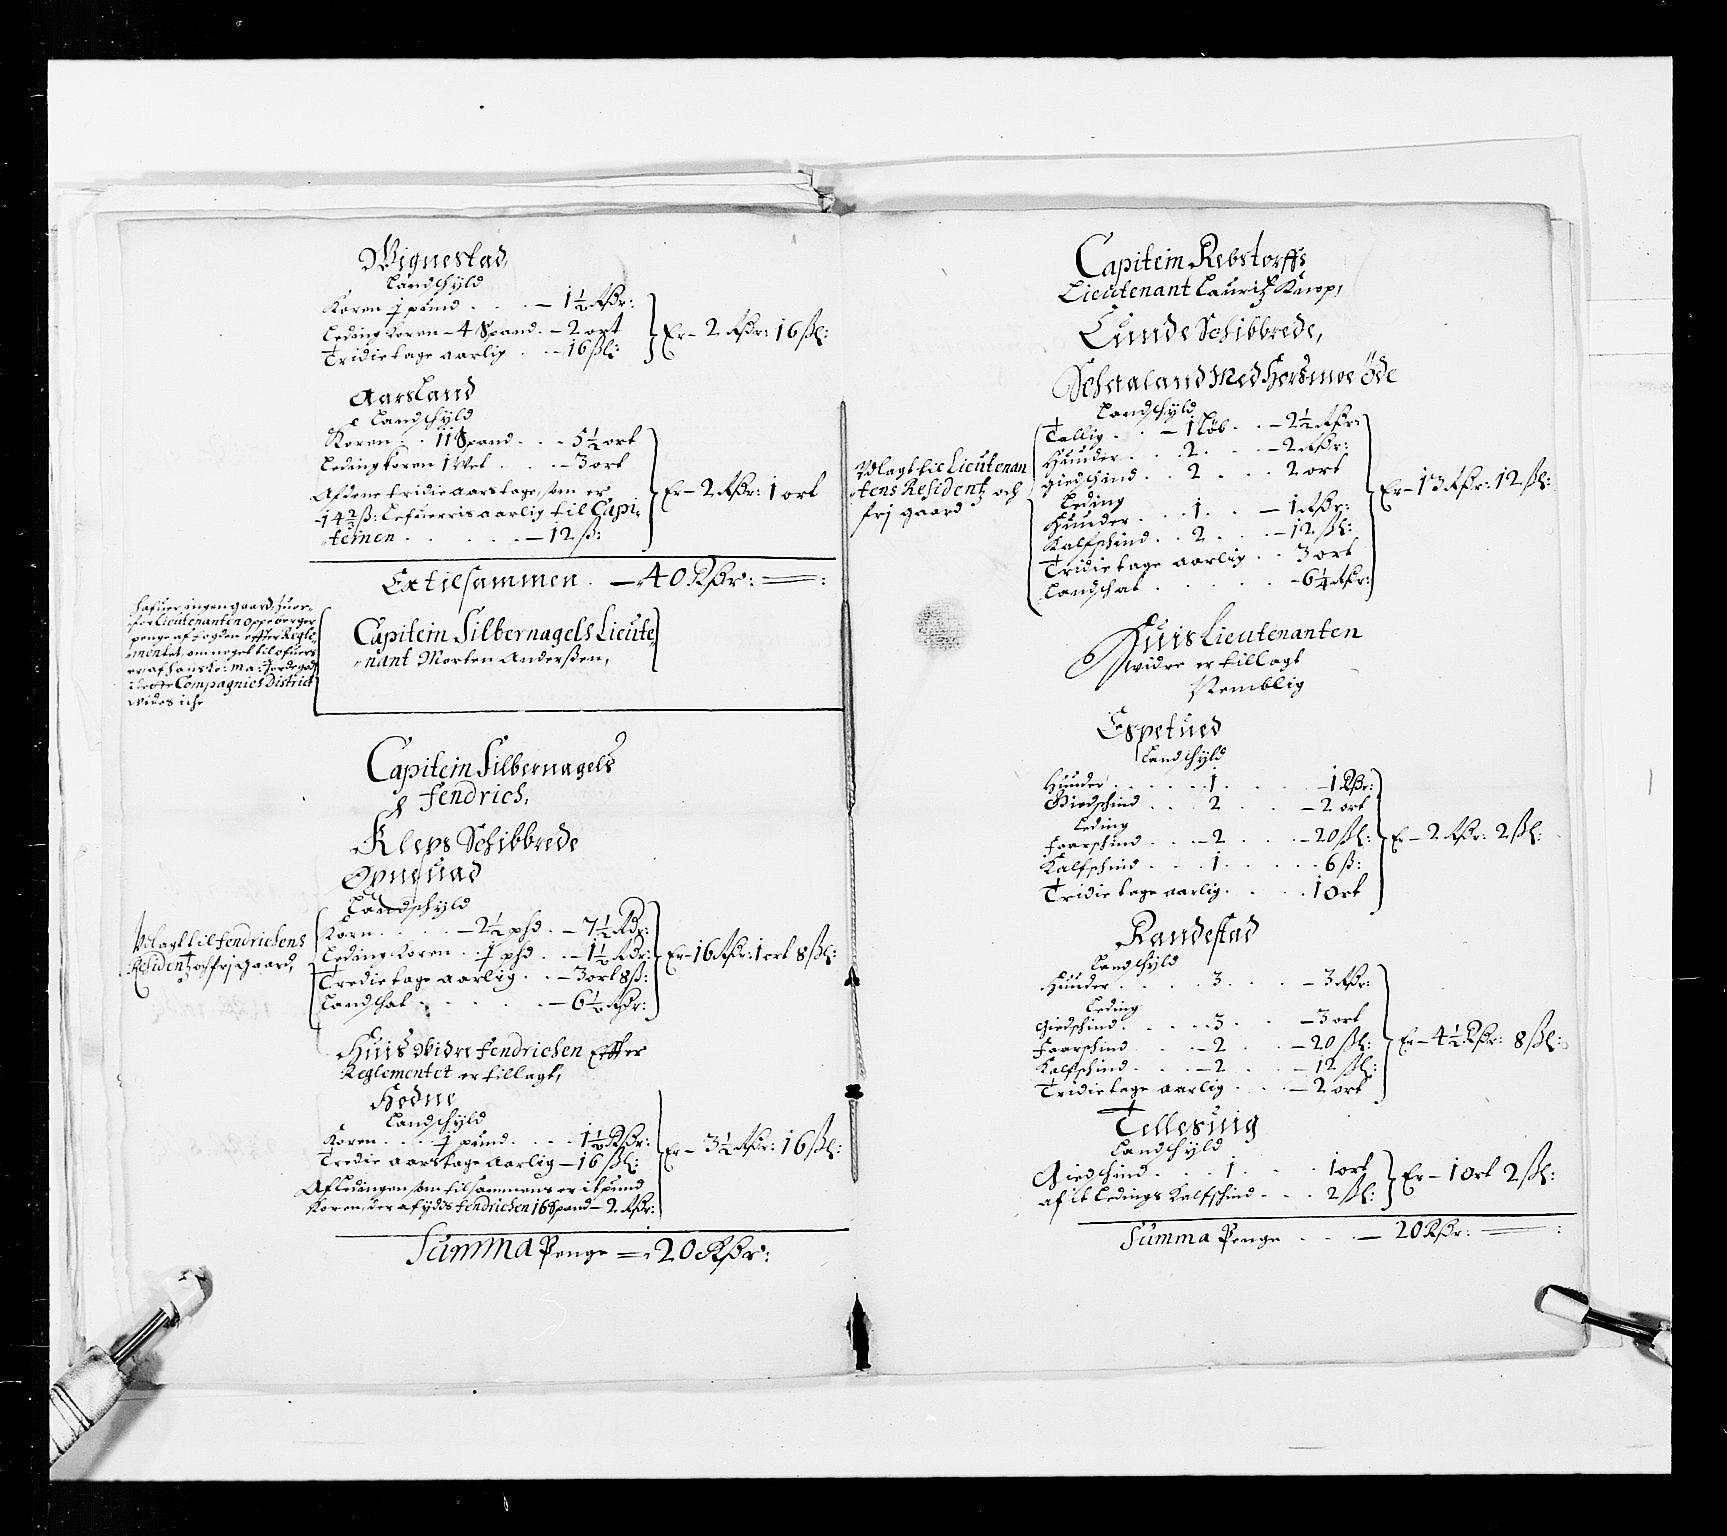 Wignestad,
Landschyld
Koren ½ pund . . . . — 1½ Rdr:
Leding Koren – 4 Spand . – 2 ort
Tridie tage aarlig . . – 16 ßl:
Er – 2 Rdr: 16 ßl:
Aarsland
Landschyld
Koren . . 11 Spand . . . 5½ ort
Leding Koren 1 Vet . . . . – 3 ort
Af dene tridie aars tage, som er
14⅔ ß: Lefuerris aarlig til Capi-
teinen . . . . . . — 12 ß:
Er – 2 Rdr: 1 ort
Er tilsammen . — 40 Rdr: ——:
Hafuer ingen gaard, huor-
for Lieutenanten oppeberger
penge af fogden effter Regle-
mentet, om noget til ofuers
er af hans Ko: Ma: Jordegods
i dette Compagnies District
vides iche
Capitein Silbernagels Lieute-
nant Morten Anderßen,
Capitein Silbernagels
fendrich,
Kleps Schibbrede
Opstuad
Landschyld
Vdlagt til fendrichens
Residentz och frj gaard,
Korn . . . . — 2½ phd . — 7½ Rdr:
Leding Koren . . ½ phd . . — 1½ Rdr:
Tredie tage aarlig . . — 3 ort 8 ß:
Landschat . . . . . . — 6½ Rdr:
Er – 16 Rdr: 1 ort 8 ßl:
Huis vidre fendrichen Effter
Reglementet er tillagt,
Hodne
Landschyld
Koren . . . . ½ pund . . . . 1½ Rdr:
Tredie aars tage aarlig — 16 ßl:
Af Ledingen som tilsammens er it pund
Koren, der af ydis fendrichen 16 Spand – 2 Rdr:
Er – 3½ Rdr: 16 ßl:
Summa Penge —. 20 Rdr:
Capitein Rebstorffs
Lieutenant Lauritz Knop,
Lunde Schibbrede,
Schetaland Med Horsmoe öde
Landschyld
Vdlagt til Lieutenan
tens Residentz och
frj gaard
Tallig . . . — 1 Löb . . — 2½ Rdr:
Huuder . . . 2 . . . . — 2 Rdr:
Giedschind . . 2 . . . 2 ort
Leding
Huuder . . . . 1 . . — 1 Rdr:
Kalfschind . . 2 . . . — 12 ßl:
Tridie tage aarlig . . 3 ort
Landschat . . . . . . – 6¼ Rdr:
Er – 13 Rdr: 12 ßl:
Huis Lieutenanten
widre er tillagt
Nemblig
Espetued
Landschyld
Huuder . . . . . 1 . . . . . — 1 Rdr:
Giedschind . . . 2 . . . . — 2 ort
Leding
Faarschind . . . – 2 . . . . – 20 ßl:
Kalfschind . . . 1 . . . . . 6 ß:
Tridie tage aarlig . . . . . 1 ort
Er – 2 Rdr: 2 ßl:
Randestad
Landschyld
Huuder . . . . . 3 . . . . — 3 Rdr:
Leding
Giedschind . . . . . 3 . . . — 3 ort
Faarschind . . . . – 2 . . . — 20 ßl:
Kalfschind . . . . – 2 . . . — 12 ßl:
Tridie tage aarlig . . . — 2 ort
Er – 4½ Rdr: 8 ßl:
Tellesuig
Landschyld
Giedschind . . . . 1 . . . . . 1 ort
af it Ledings Kalfschind . . . . 2 ßl:
Er – 1 ort 2 ßl:
Summa Penge . . . . — 20 Rdr: —— :